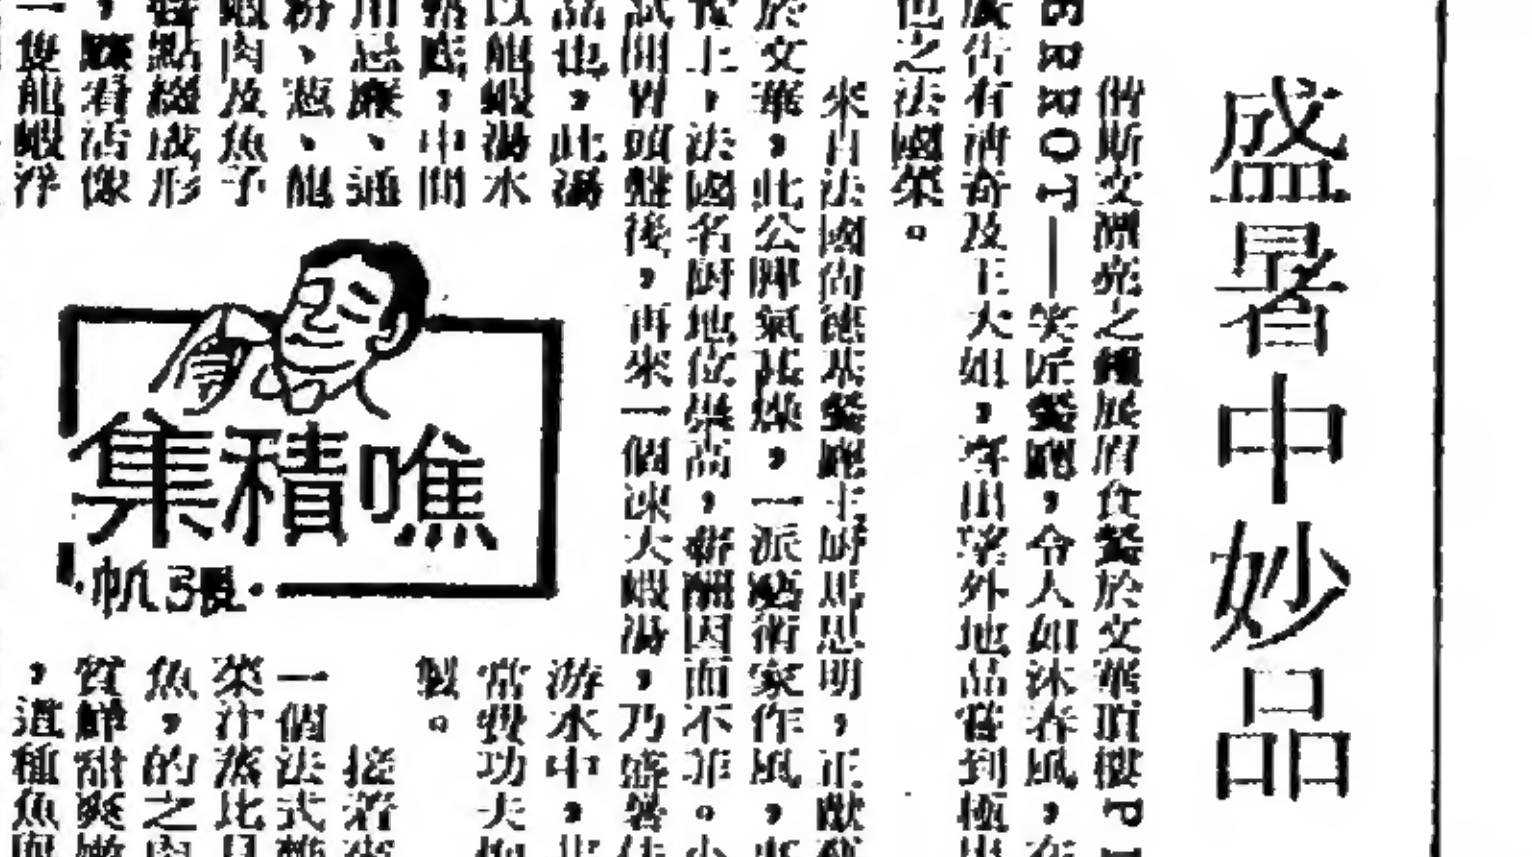 盛暑中妙品
偕斯文漂亮之
展眉食餐於文華頂樓P
RROT——笑匠餐廳，令人如沐春風，在
廣告有濟奇及王大姐，
出望外地品嘗到極
也之法國菜。
來自法國尚德基餐廳主廚馬思明，正獻
於文華，此公脾氣甚燥，一派藝術家作風，
上，法國名厨地位崇高，薪酬因而不菲。
試開胃頭盤後，再來一個凍大蝦湯，乃盛暑佳
品也，此湯
以龍蝦湯水
底，中間
用忌廉、通
粉、葱、龍
蝦肉及魚子
醬點綴成形
，驟看活像
一隻龍蝦浮
噍積集
·張帆·
游水中，
當費功夫
製。
接着來
一個法式
菜汁蒸比目
魚，的之肉
質鮮甜爽嫩
，這種魚